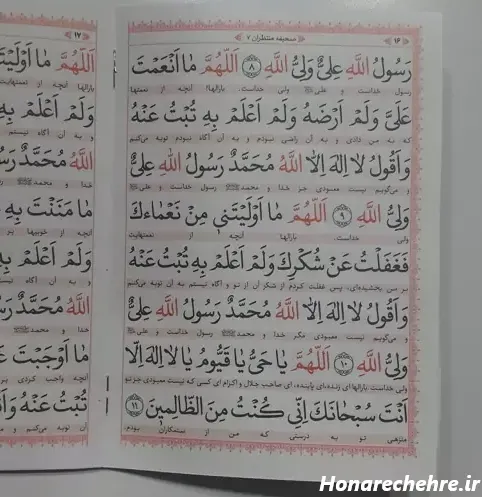 ۱۶ صحیفه منتظران ۷
رَسُولُ اللّٰهِ عَلِیٌّ وَلِیُّ اللّٰهِ ۸ اَللّٰهُمَّ مَا اَنْعَمْتَ
رسول خداست و علی ولی خداست. بارالها! آنچه از نعمتها
عَلَیَّ وَلَمْ اَرْضَهُ وَلَمْ اَعْلَمْ بِهِ تُبْتُ عَنْهُ
که به من دادی و به آن راضی نبودم و به آن آگاه نبودم توبه می‌کنم
وَاَقُولُ لَا اِلٰهَ اِلَّا اللّٰهُ مُحَمَّدٌ رَسُولُ اللّٰهِ عَلِیٌّ
و می‌گویم نیست معبودی جز خدا و محمد ﷺ رسول خداست و علی
وَلِیُّ اللّٰهِ ۹ اَللّٰهُمَّ مَا اَوْلَیْتَنِی مِنْ نَعْمَاءِكَ
ولی خداست. بارالها آنچه از نعمتهایت
فَغَفَلْتُ عَنْ شُكْرِكَ وَلَمْ اَعْلَمْ بِهِ تُبْتُ عَنْهُ
بر من بخشیده‌ای، پس غفلت کردم از شکر آن از تو و آگاه نیستم به آن توبه می‌کنم
وَاَقُولُ لَا اِلٰهَ اِلَّا اللّٰهُ مُحَمَّدٌ رَسُولُ اللّٰهِ عَلِیٌّ
و می‌گویم نیست معبودی مگر خدا و محمد ﷺ رسول خداست و علی
وَلِیُّ اللّٰهِ ۱۰ اَللّٰهُمَّ یَا حَیُّ یَا قَیُّومُ یَا لَا اِلٰهَ اِلَّا
ولی خداست بارالها ای زنده‌ای پاینده، ای صاحب جلال و اکرام ای کسی که نیست معبودی جز تو
اَنْتَ سُبْحَانَكَ اِنِّی كُنْتُ مِنَ الظَّالِمِینَ ۱۱
منزهی تو به درستی که من از ستمکاران بودم.
۱۷
اَللّٰهُمَّ مَا اَوْلَیْتَ
بارالها آنچه از نعمتهایت
وَلَمْ اَعْلَمْ بِهِ
و به آن آگاه نیستم
اللّٰهُ مُحَمَّدٌ رَسُ
خدا و محمد ﷺ
مَا مَنَنْتَ بِهِ
آنچه از خوبیها بر
وَلَمْ اَعْلَمْ بِهِ
و به آن آگاه نیستم
اللّٰهُ مُحَمَّدٌ رَسُ
خدا و محمد ﷺ
مَا اَوْجَبْتَ عَ
آنچه واجب کردی بر
تُبْتُ عَنْهُ وَاَ
از آن توبه می‌کنم و
Honarechehre.ir